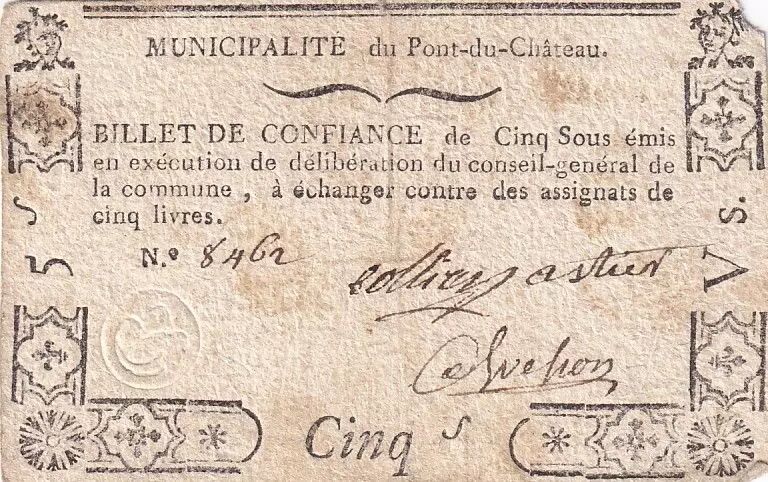 MUNICIPALITÉ du Pont-du-Château.
BILLET DE CONFIANCE de Cinq Sous émis
en exécution de délibération du conseil-genéral de
la commune, à échanger contre des assignats de
cinq livres.
N.º 8462
5 S
V S.
Cinq S